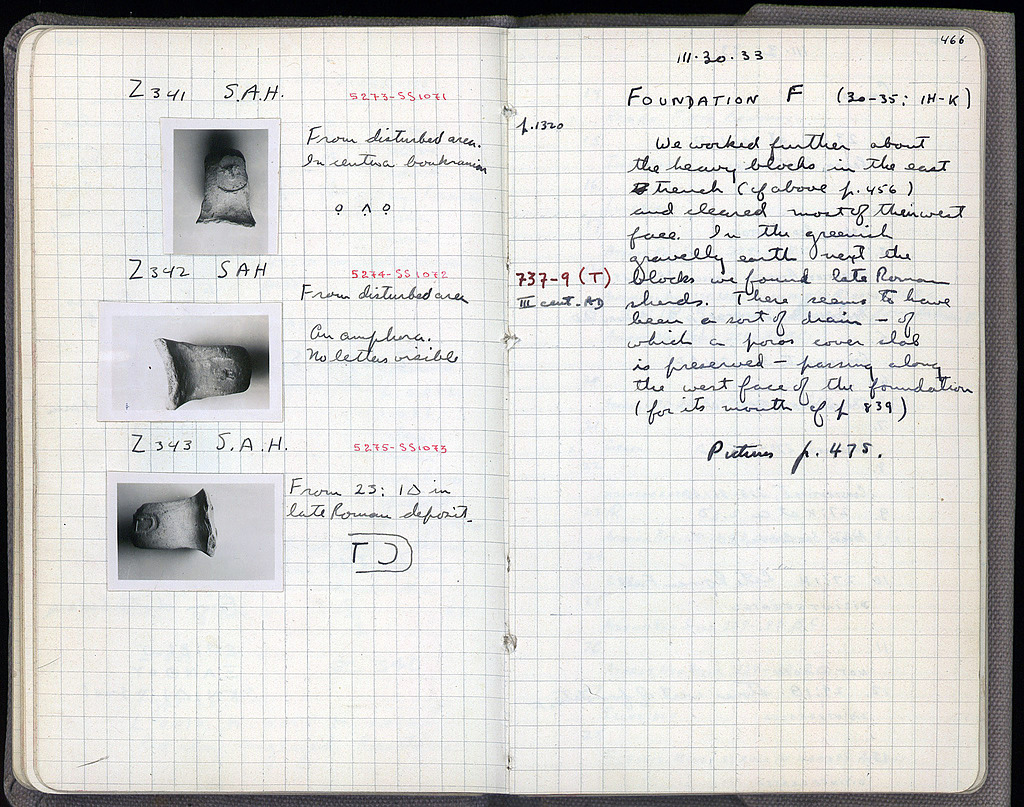 Z341 S.A.H. 5273-SS1071
From disturbed area.
In center a boukranion
o ʌ o
Z342 SAH 5274-SS1072
From disturbed area
An amphora.
No letters visible
Z343 S.A.H. 5275-SS1073
From 25: 1Δ in
late Roman deposit.
T Ɔ
466
III·30·33
FOUNDATION F (30-35: IH-K)
p.1320
We worked further about
the heavy blocks in the east
trench (cf above p. 456)
and cleared most of their west
face. In the greenish
gravelly earth next the
737-9 (T)
blocks we found late Roman
III cent. AD
sherds. There seems to have
been a sort of drain – of
which a poros cover slab
is preserved – passing along
the west face of the foundation
(for its mouth cf p 839)
Pictures p. 475.